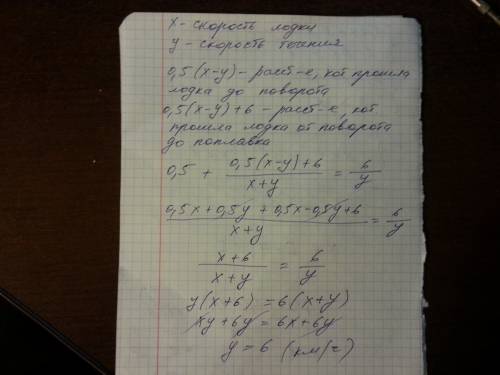 x - скорость лодки
y - скорость течения
0,5(x-y) - расст-е, кот прошла
лодка до поворота
0,5(x-y)+6 - расст-е, кот
прошла лодка от поворота
до поплавка
0,5 + (0,5(x-y)+6)/(x+y) = 6/y
(0,5x+0,5y+0,5x-0,5y+6)/(x+y) = 6/y
(x+6)/(x+y) = 6/y
y(x+6)=6(x+y)
xy+6y=6x+6y
y=6 (км/ч)